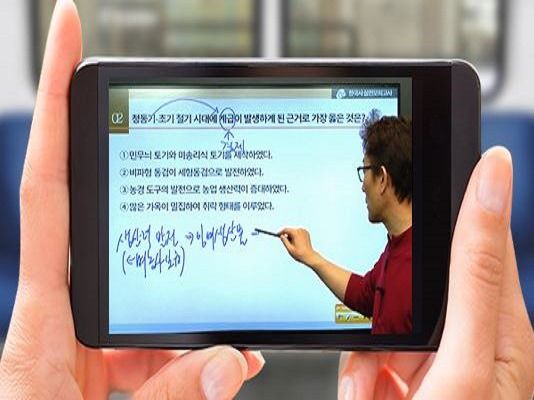 한국사 실전모의고사
02 청동기·초기 철기 시대에 계급이 발생하게 된 근거로 가장 옳은 것은?
경제
① 민무늬 토기와 미송리식 토기를 제작하였다.
② 비파형 동검이 세형동검으로 발전하였다.
③ 농경 도구의 발전으로 농업 생산력이 증대하였다.
④ 많은 가옥이 밀집하여 취락 형태를 이루었다.
생산력 발전 → 잉여생산물 →